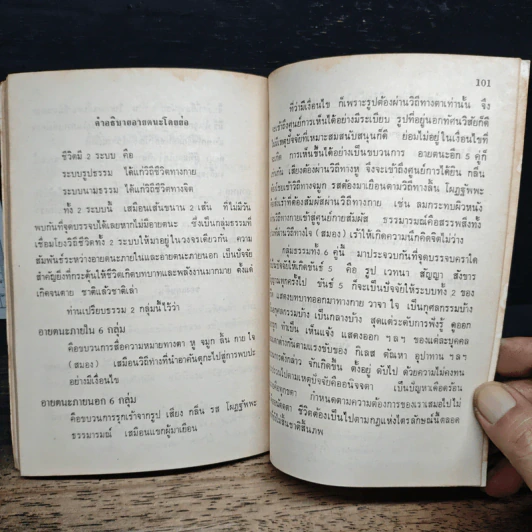 คำอธิบายอายตนะโดยย่อ
ชีวิตมี 2 ระบบ คือ
ระบบรูปธรรม ได้แก่วิถีชีวิตทางกาย
ระบบนามธรรม ได้แก่วิถีชีวิตทางจิต
ทั้ง 2 ระบบนี้ เสมือนเส้นขนาน 2 เส้น ที่ไม่มีวัน
พบกันที่จุดบรรจบได้เลยหากไม่มีอายตนะ ซึ่งเป็นกลุ่มธรรมที่
เชื่อมโยงวิถีชีวิตทั้ง 2 ระบบให้มาอยู่ในวงจรเดียวกัน ความ
สัมพันธ์ระหว่างอายตนะภายในและอายตนะภายนอก เป็นปัจจัย
สำคัญยิ่งที่กระตุ้นให้ชีวิตเกิดบทบาทและพลังงานมากมาย ตั้งแต่
เกิดจนตาย ชาติแล้วชาติเล่า
ท่านเปรียบธรรม 2 กลุ่มนี้ไว้ว่า
อายตนะภายใน 6 กลุ่ม
คือขบวนการสื่อความหมายทางตา หู จมูก ลิ้น กาย ใจ
(สมอง) เสมือนวิถีทางที่นำอาคันตุกะไปสู่การพบปะ
อย่างมีเงื่อนไข
อายตนะภายนอก 6 กลุ่ม
คือขบวนการรุกเร้าจากรูป เสียง กลิ่น รส โผฏฐัพพะ
ธรรมารมณ์ เสมือนแขกผู้มาเยือน
101
ที่ว่ามีเงื่อนไข ก็เพราะรูปต้องผ่านวิถีทางตาเท่านั้น จึง
จะเข้าถึงศูนย์การเห็นได้อย่างมีระเบียบ รูปที่อยู่นอกทัศนวิสัยก็ดี
เหตุปัจจัยที่เหมาะสมสนับสนุนก็ดี ย่อมไม่อยู่ในเงื่อนไขที่
การเห็นขึ้นได้อย่างเป็นขบวนการ อายตนะอีก 5 คู่ก็
เสียงต้องผ่านวิถีทางหู จึงจะเข้าถึงศูนย์การได้ยิน กลิ่น
เข้าวิถีทางจมูก รสต้องมาเยือนตามวิถีทางลิ้น โผฏฐัพพะ
ต้องสัมผัสผ่านวิถีทางกาย เช่น ลมกระทบผิวหนัง
วิถีทางกายเข้าสู่ศูนย์กายสัมผัส ธรรมารมณ์คือสรรพสิ่งทั้ง
วิถีทางใจ (สมอง) เร้าให้เกิดความนึกคิดจิตไม่ว่าง
กลุ่มธรรมทั้ง 6 คู่นี้ มาประจวบกันที่จุดบรรจบคราใด
ให้เกิดขันธ์ 5 คือ รูป เวทนา สัญญา สังขาร
ทุกครั้งไป ขันธ์ 5 ก็จะเป็นปัจจัยให้ระบบทั้ง 2 ของ
แสดงบทบาทออกมาทางกาย วาจา ใจ เป็นกุศลกรรมบ้าง
กรรมบ้าง เป็นกลางบ้าง สุดแต่ระดับการฟังรู้ ดูออก
ทำเป็น เห็นแจ้ง แสดงออก ฯลฯ ของแต่ละบุคคล
ต่างกันตามแรงขับของ กิเลส ตัณหา อุปาทาน ฯลฯ
ดังกล่าว จักเกิดขึ้น ตั้งอยู่ ดับไป ด้วยความไม่คงทน
ไปตามเหตุปัจจัยคืออนิจจตา เป็นปัญหาเดือดร้อน
คือทุกขตา กำหนดตามความต้องการของเราเสมอไปไม่
ชีวิตต้องเป็นไปตามกฎแห่งไตรลักษณ์นี้ตลอด
สิ้นชาติสิ้นภพ